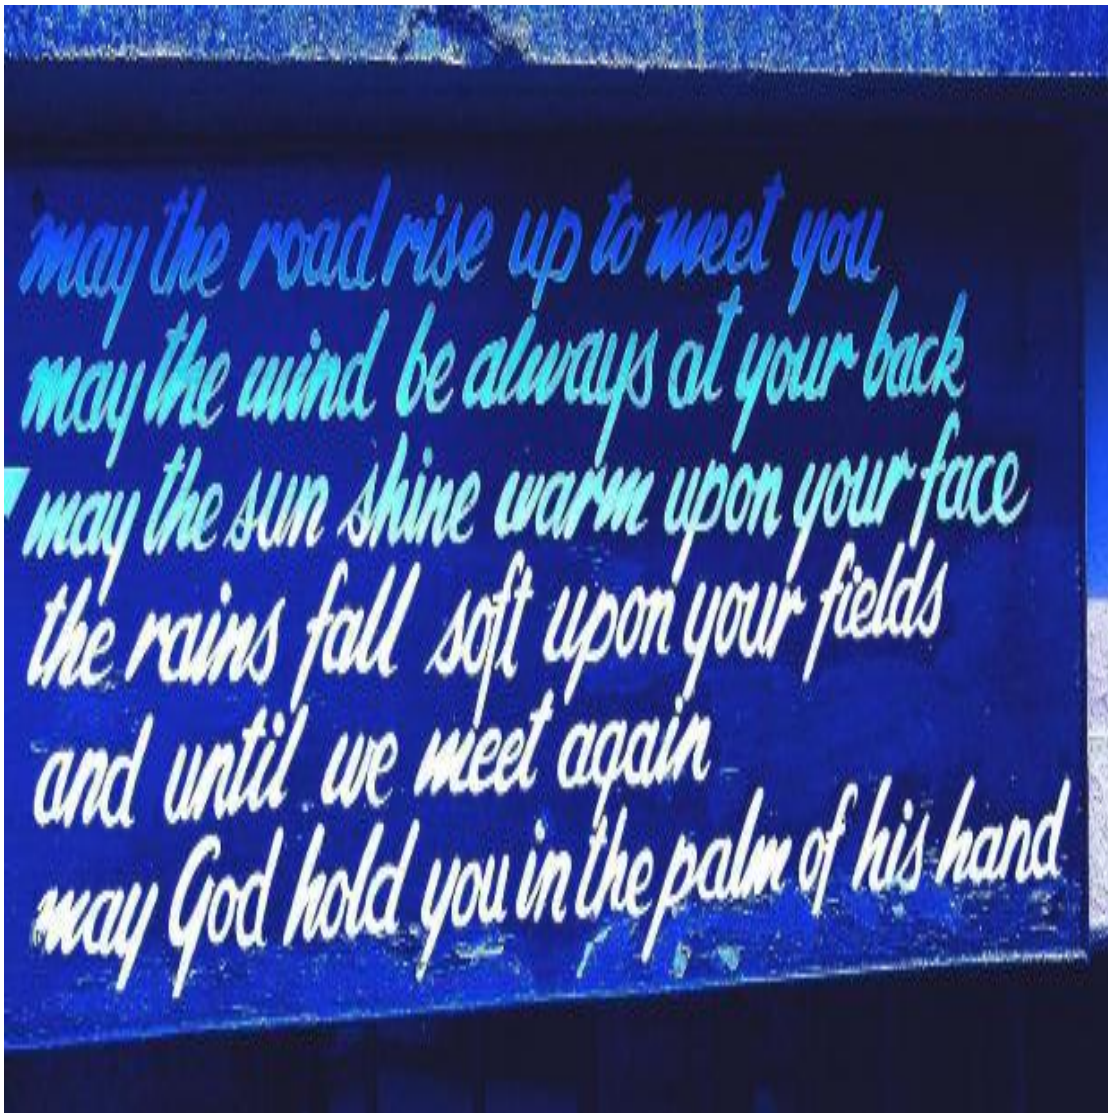 may the road rise up to meet you
may the wind be always at your back
may the sun shine warm upon your face
the rains fall soft upon your fields
and until we meet again
may God hold you in the palm of his hand